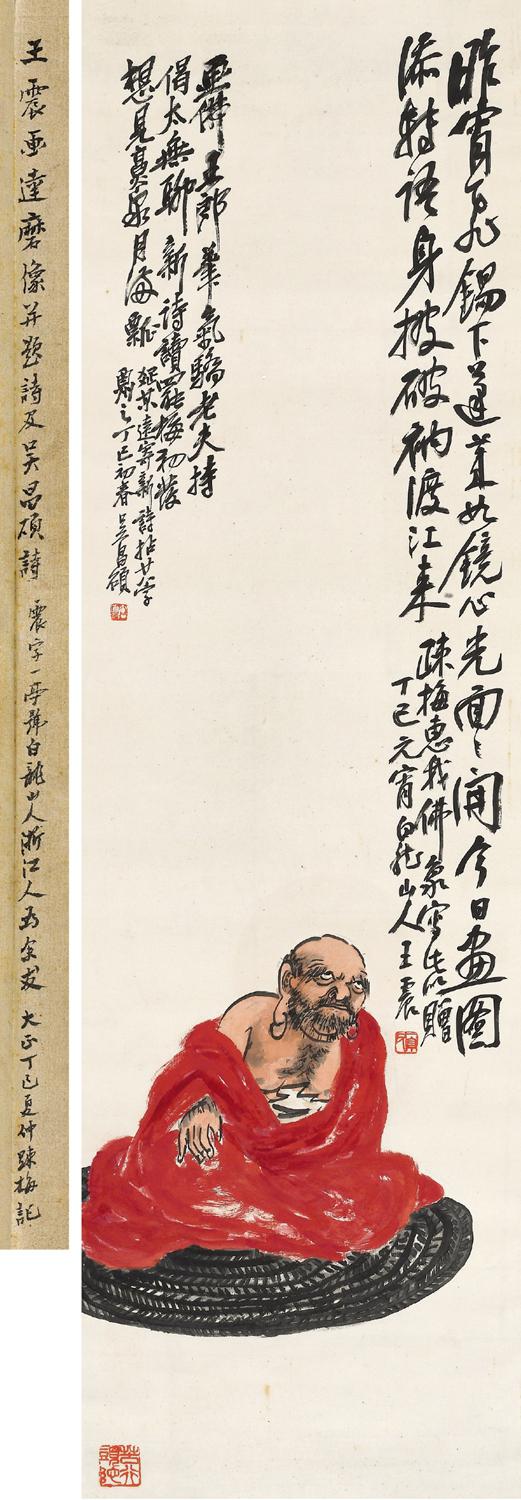 昨宵飛錫下蓬萊如鏡心光面〻開今日畫圖
添轉語身披破衲渡江來
疎梅惠我佛象寫此以贈
丁巳元宵白龍山人王震
王郎筆氣驕老夫持
倡太無聊新詩讀罷梅初發
想見泉月滿瓢
遠寄新詩拈廿字
丁巳初春吳昌碩
王震画達磨像并題詩及吳昌碩詩
震字一亭號白龍山人浙江人為余友 大正丁巳夏仲疎梅記